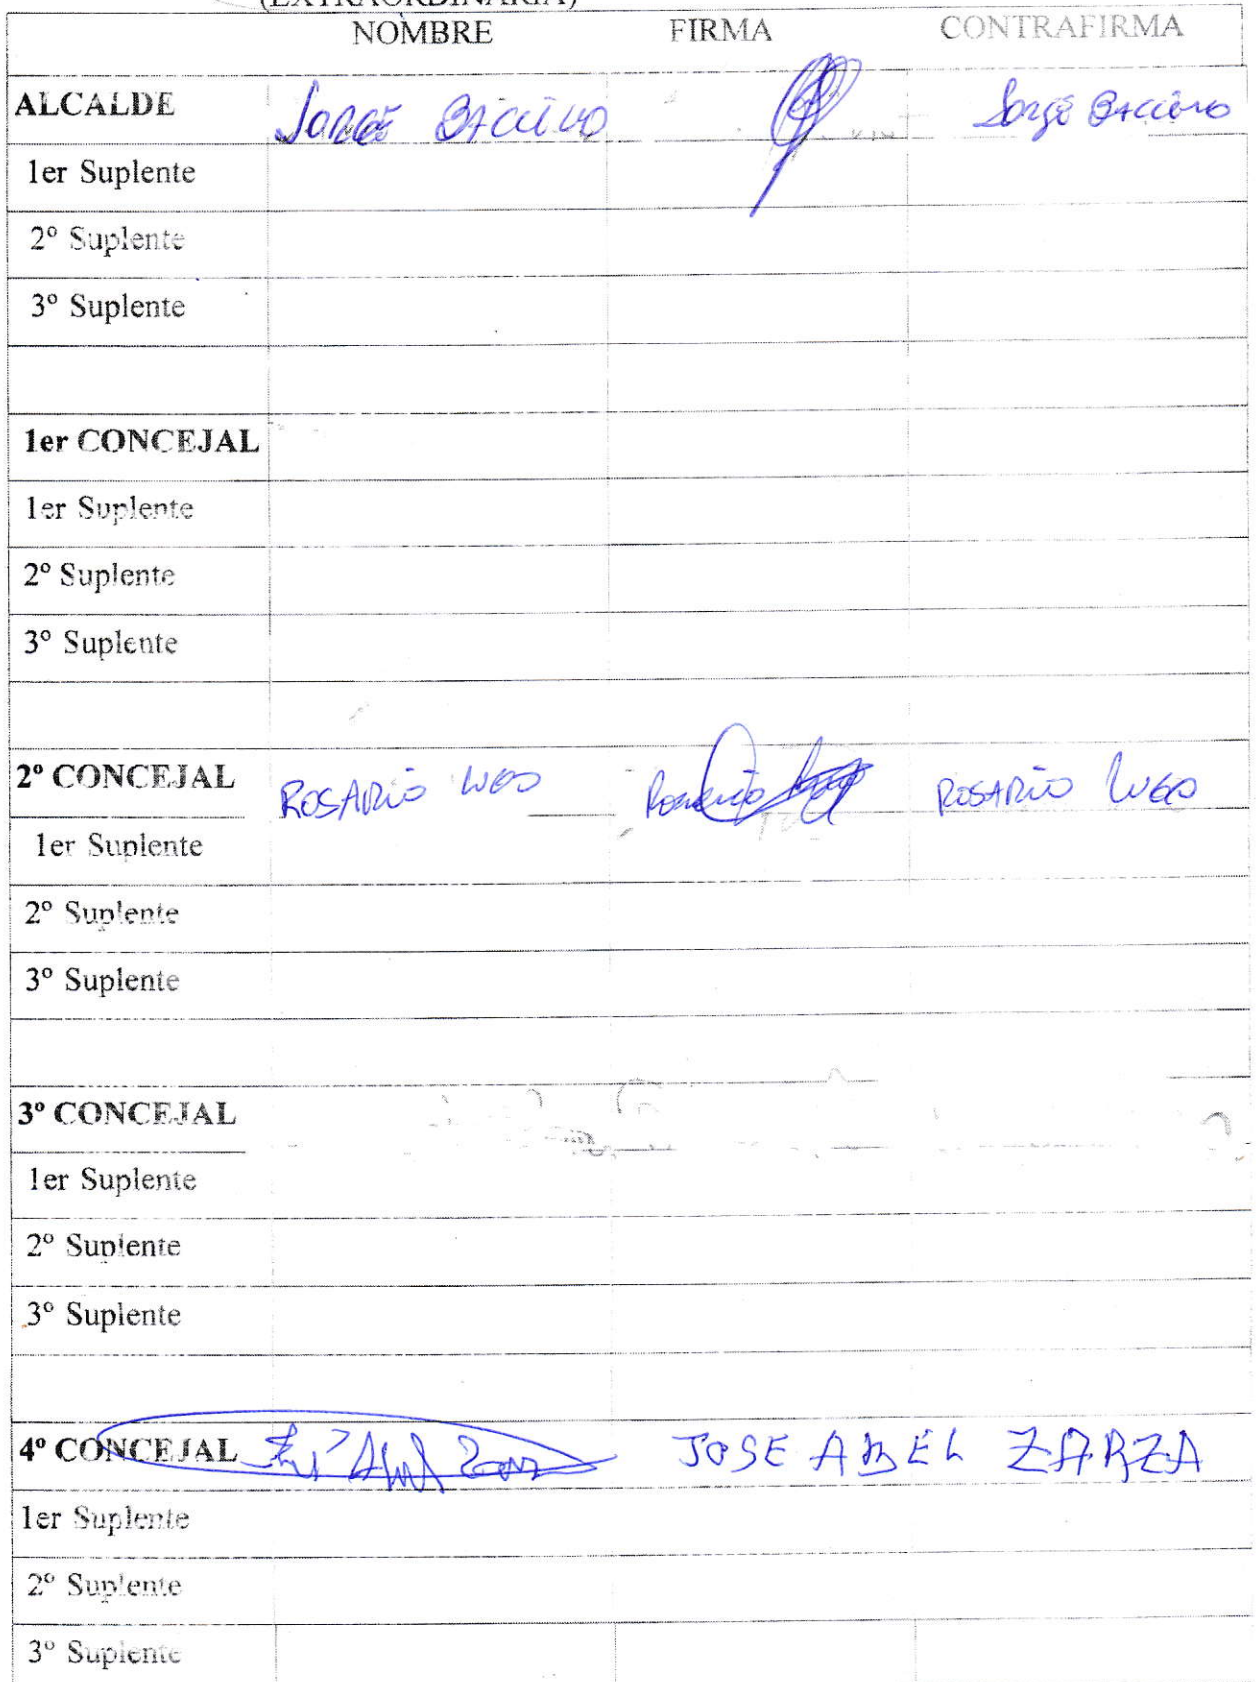 (EXTRAORDINARIA)
NOMBRE FIRMA CONTRAFIRMA
ALCALDE JORGE BACCINO Jorge Baccino
1er Suplente
2º Suplente
3º Suplente
1er CONCEJAL
1er Suplente
2º Suplente
3º Suplente
2º CONCEJAL ROSARIO LUGO Rosario ROSARIO LUGO
1er Suplente
2º Suplente
3º Suplente
3º CONCEJAL
1er Suplente
2º Suplente
3º Suplente
4º CONCEJAL JOSE ABEL ZARZA
1er Suplente
2º Suplente
3º Suplente